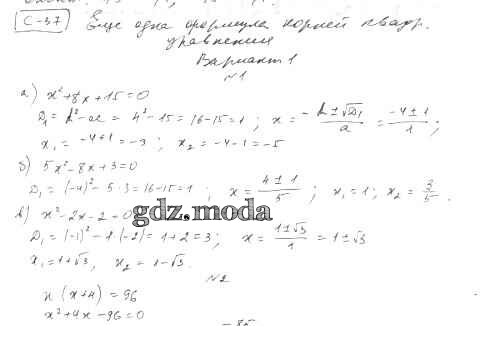 С-37 Еще одна формула корней квадр.
уравнения
Вариант 1
№1
а) x²+8x+15=0
D₁ = k²-ac = 4²-15=16-15=1 ; x = (-k±√D₁)/a = (-4±1)/1 ;
x₁ = -4+1 = -3 ; x₂ = -4-1 = -5
б) 5x²-8x+3=0
D₁ = (-4)² - 5·3 = 16-15=1 ; x = (4±1)/5 ; x₁=1 ; x₂ = 3/5 .
в) x²-2x-2=0
gdz.moda
D₁ = (-1)² - 1·(-2) = 1+2=3 ; x = (1±√3)/1 = 1±√3
x₁ = 1+√3 , x₂ = 1-√3 .
№2
x (x+4) = 96
x²+4x-96=0
- 85